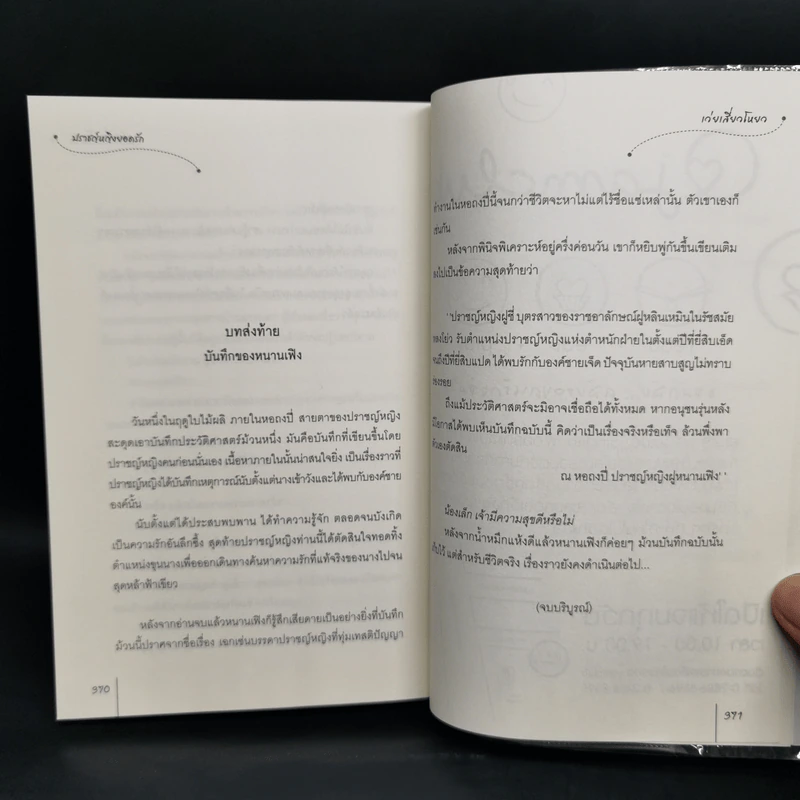 ปราชญ์หญิงยอดรัก
บทส่งท้าย
บันทึกของหนานเฟิง
วันหนึ่งในฤดูใบไม้ผลิ ภายในหอถงปี่ สายตาของปราชญ์หญิง
สะดุดเอาบันทึกประวัติศาสตร์ม้วนหนึ่ง มันคือบันทึกที่เขียนขึ้นโดย
ปราชญ์หญิงคนก่อนนั่นเอง เนื้อหาภายในนั้นน่าสนใจยิ่ง เป็นเรื่องราวที่
ปราชญ์หญิงได้บันทึกเหตุการณ์นับตั้งแต่นางเข้าวังและได้พบกับองค์ชาย
องค์นั้น
นับตั้งแต่ได้ประสบพบพาน ได้ทำความรู้จัก ตลอดจนบังเกิด
เป็นความรักอันลึกซึ้ง สุดท้ายปราชญ์หญิงท่านนี้ได้ตัดสินใจทอดทิ้ง
ตำแหน่งขุนนางเพื่อออกเดินทางค้นหาความรักที่แท้จริงของนางไปจน
สุดหล้าฟ้าเขียว
หลังจากอ่านจบแล้วหนานเฟิงก็รู้สึกเสียดายเป็นอย่างยิ่งที่บันทึก
ม้วนนี้ปราศจากชื่อเรื่อง เฉกเช่นบรรดาปราชญ์หญิงที่ทุ่มเทสติปัญญา
370
เว่ยเสี่ยวโหยว
ทำงานในหอถงปี่นี้จนกว่าชีวิตจะหาไม่แต่ไร้ชื่อแซ่เหล่านั้น ตัวเขาเองก็
เช่นกัน
หลังจากพินิจพิเคราะห์อยู่ครึ่งค่อนวัน เขาก็หยิบพู่กันขึ้นเขียนเติม
ลงไปเป็นข้อความสุดท้ายว่า
''ปราชญ์หญิงฝูซี่ บุตรสาวของราชอาลักษณ์ฝูหลินเหมินในรัชสมัย
หลงโย่ว รับตำแหน่งปราชญ์หญิงแห่งตำหนักฝ่ายในตั้งแต่ปีที่ยี่สิบเอ็ด
จนถึงปีที่ยี่สิบแปด ได้พบรักกับองค์ชายเจ็ด ปัจจุบันหายสาบสูญไม่ทราบ
ร่องรอย
ถึงแม้ประวัติศาสตร์จะมิอาจเชื่อถือได้ทั้งหมด หากอนุชนรุ่นหลัง
มีโอกาสได้พบเห็นบันทึกฉบับนี้ คิดว่าเป็นเรื่องจริงหรือเท็จ ล้วนพึ่งพา
ตัวเองตัดสิน
ณ หอถงปี่ ปราชญ์หญิงฝูหนานเฟิง''
น้องเล็ก เจ้ามีความสุขดีหรือไม่
หลังจากน้ำหมึกแห้งดีแล้วหนานเฟิงก็ค่อยๆ ม้วนบันทึกฉบับนั้น
เก็บไว้ แต่สำหรับชีวิตจริง เรื่องราวยังคงดำเนินต่อไป...
(จบบริบูรณ์)
371